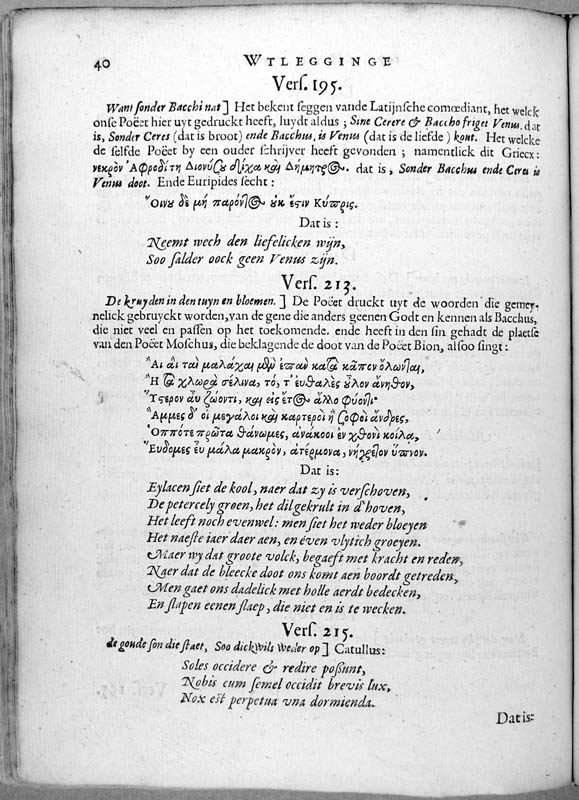 40 WTLEGGINGE
Vers. 195.
Want sonder Bacchi nat] Het bekent seggen vande Latijnsche comœdiant, het welck
onse Poëet hier uyt gedruckt heeft, luydt aldus; Sine Cerere & Baccho friget Venus. dat
is, Sonder Ceres (dat is broot) ende Bacchus, is Venus (dat is de liefde) kout. Het welcke
de selfde Poëet by een ouder schrijver heeft gevonden; namentlick dit Griecx:
νεκρὸν Ἀφροδίτη Διονύσου δίχα καὶ Δήμητρος. dat is, Sonder Bacchus ende Ceres is
Venus doot. Ende Euripides secht:
Οἴνου δὲ μή παρόντος οὐκ ἔστιν Κύπρις.
Dat is:
Neemt wech den liefelicken wijn,
Soo salder oock geen Venus zijn.
Vers. 213.
De kruyden in den tuyn en bloemen.] De Poëet druckt uyt de woorden die gemey-
nelick gebruyckt worden, van de gene die anders geenen Godt en kennen als Bacchus,
die niet veel en passen op het toekomende. ende heeft in den sin gehadt de plaetse
van den Poëet Moschus, die beklagende de doot van de Poëet Bion, alsoo singt:
Αἲ αἲ ταὶ μαλάχαι μὲν ἐπὰν κατὰ κᾶπον ὄλωνται,
Ἢ τὰ χλωρὰ σέλινα, τό, τ' εὐθαλὲς οὖλον ἄνηθον,
Ὕστερον αὖ ζώοντι, καὶ εἰς ἔτος ἄλλο φύοντι·
Ἄμμες δ' οἱ μεγάλοι καὶ καρτεροὶ ἢ σοφοὶ ἄνδρες,
Ὁππότε πρῶτα θάνωμες, ἀνάκοοι ἐν χθονὶ κοίλα,
Εὕδομες εὖ μάλα μακρὸν, ἀτέρμονα, νήγρετον ὕπνον.
Dat is:
Eylacen siet de kool, naer dat zy is verschoven,
De petercely groen, het dil gekrult in d'hoven,
Het leeft noch evenwel: men siet het weder bloeyen
Het naeste iaer daer aen, en éven vlytich groeyen.
Maer wy dat groote volck, begaeft met kracht en reden,
Naer dat de bleecke doot ons komt aen boordt getreden,
Men gaet ons dadelick met holle aerdt bedecken,
En slapen eenen slaep, die niet en is te wecken.
Vers. 215.
de goude son die staet, Soo dickwils weder op] Catullus:
Soles occidere & redire possunt,
Nobis cum semel occidit brevis lux,
Nox est perpetua vna dormienda.
Dat is: